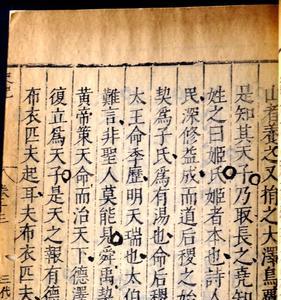 山者養之又捐之大澤鳥覆
是知其天子乃取長之堯知
姓之曰姬氏姬者本也詩人
民深修益成而道后稷之始
契爲子氏爲有湯也命后稷
太王命季歷明天瑞也太伯
難言非聖人莫能見舜禹契
黃帝策天命而治天下德澤
復立爲天子是天之報有德
布衣匹夫起耳夫布衣匹夫
三代